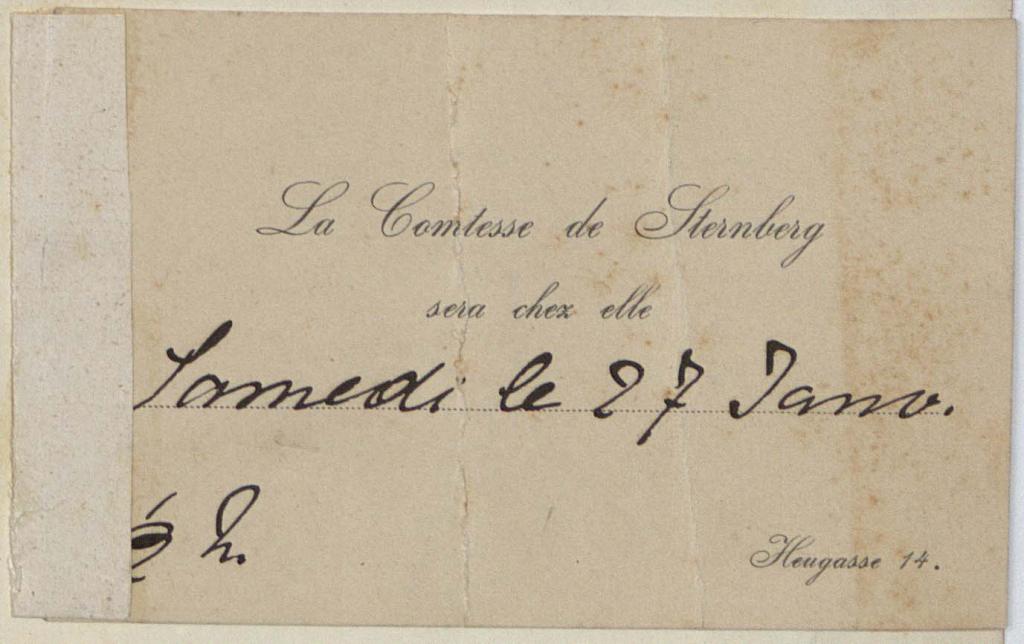 La Comtesse de Sternberg
sera chez elle
Samedi le 27 Janv.
h.
Heugasse 14.